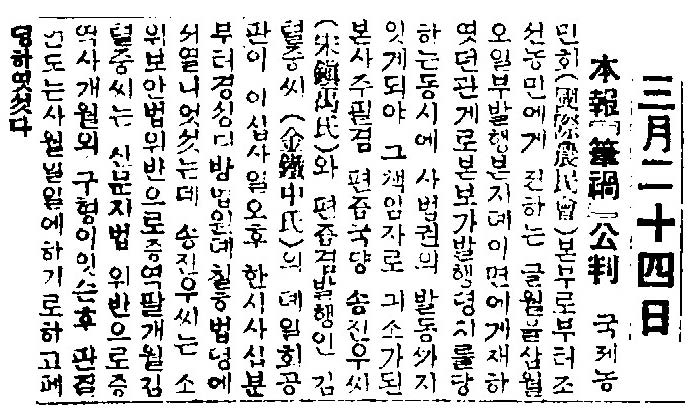 三月二十四日
本報「筆禍」公判 국제농
민회(國際農民會)본부로부터조
선농민에게 전하는 글월을삼월
오일부발행본지데이면에게재하
엿던관계로본보가발행뎡지를당
하는동시에 사법권의 발동까지
잇게되야 그책임자로 긔소가된
본사주필겸 편즙국댱 송진우씨
(宋鎭禹氏)와 편즙겸발행인 김
텰중씨 (金鐵中氏)의 데일회공
판이 이십사일오후 한시사십분
부터경성디방법원뎨칠호법뎡에
서열니엇섯는데 송진우씨는 소
위보안법위반으로증역팔개월김
텰중씨는 신문지법 위반으로증
역사개월의 구형이잇슨후 판결
언도는사월 에하기로하고폐
뎡하엿섯다